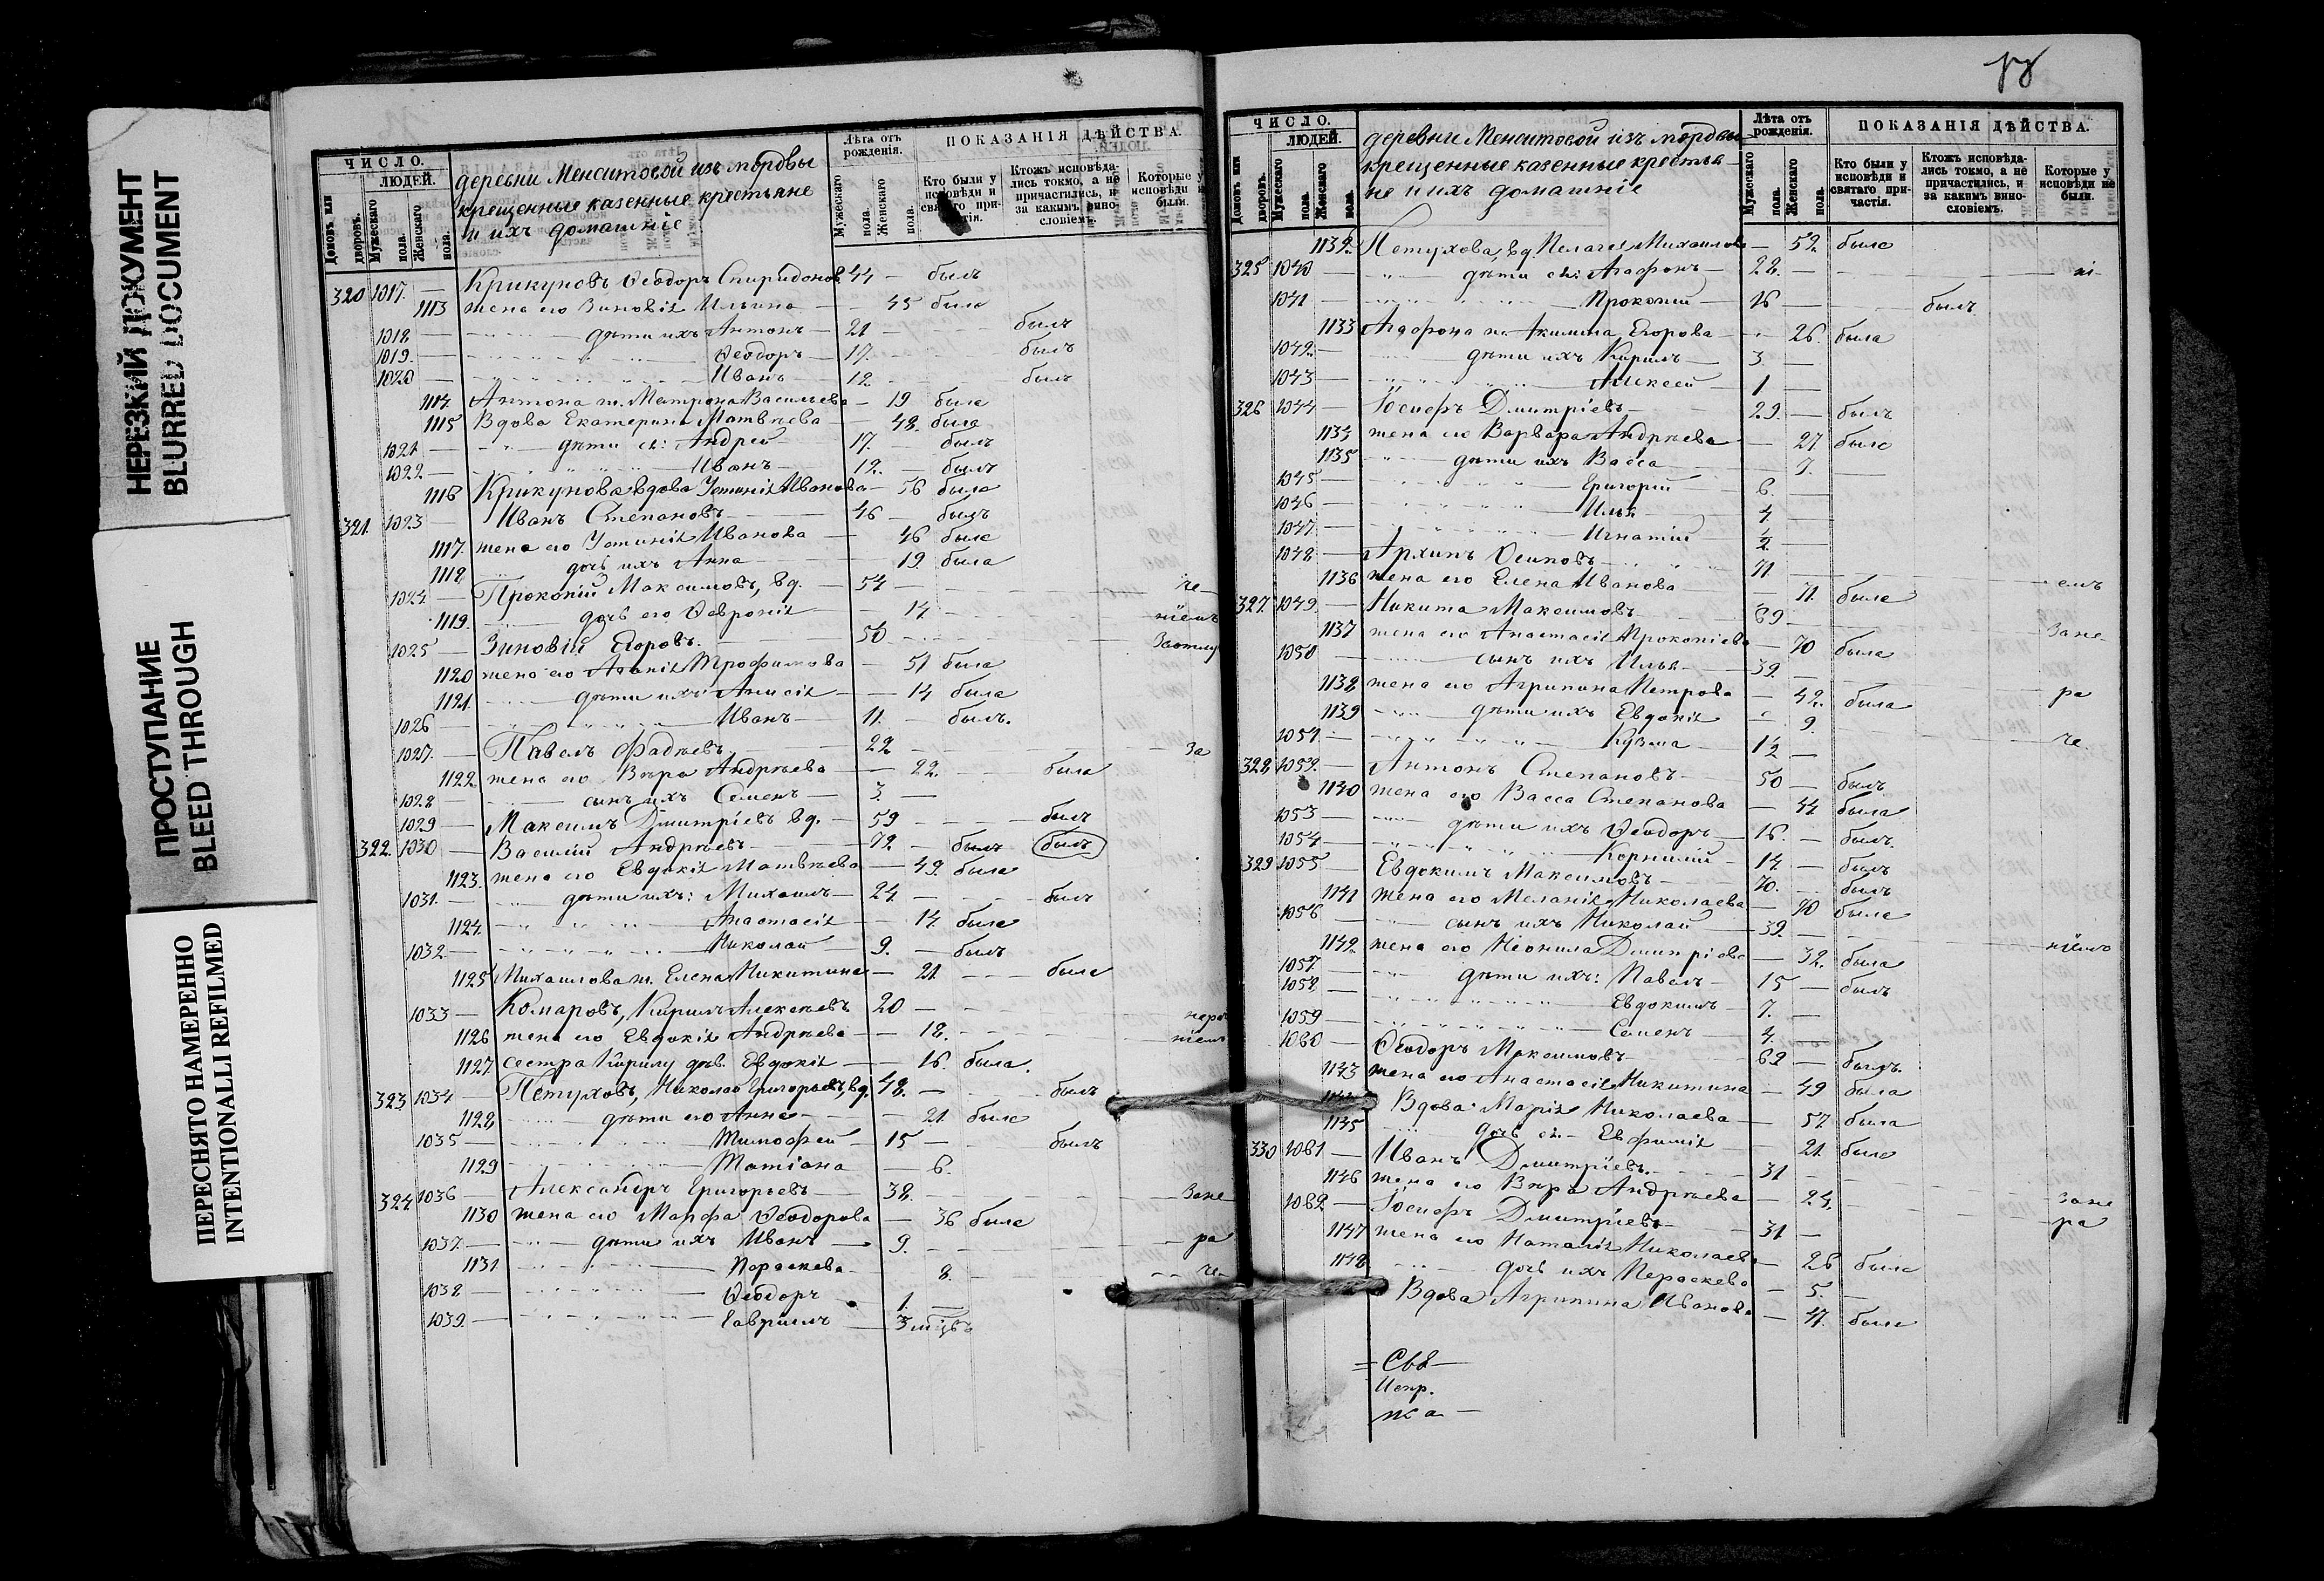 НЕРЕЗКИЙ ДОКУМЕНТ
BLURRED DOCUMENT
ПРОСТУПАНИЕ
BLEED THROUGH
ПЕРЕСНЯТО НАМЕРЕННО
INTENTIONALLI REFILMED
ЧИСЛО.
ЛЮДЕЙ.
Домовъ или дворовъ.
Мужескаго пола.
Женскаго пола.
деревни Менситовой изъ мордвы
крещенные казенные крестьяне
и ихъ домашніе
Лѣта отъ рожденія.
Мужескаго пола.
Женскаго пола.
ПОКАЗАНІЯ ДѢЙСТВА.
Кто были у исповѣди и святаго причастія.
Ктожъ исповѣдались токмо, а не причастились, и за какимъ винословіемъ.
Которые у исповѣди не были.
320 1017. — Крикуновъ Ѳеодоръ Спиридонов 44 — былъ
1113 жена его Зиновія Ильина — 45 была
1018 — дѣти ихъ Антонъ — 21 — былъ
1019. — Ѳеодоръ — 17. былъ
1020 — Иванъ — 12. былъ
1114. Антона ж. Матрона Васильева — 19 была
1115 Вдова Екатерина Матвѣева — 48. была
1021 — дѣти ея: Андрей — 17. — былъ
1022 — Иванъ — 12. — былъ
1116 Крикунова вдова Устинія Иванова — 56 была
321. 1023 — Иванъ Степановъ — 46 — былъ
1117. жена его Устинія Иванова — 46 была
1118 дочь ихъ Анна — 19. была
1024. — Прокопій Максимовъ, вд. — 54 — не-
1119. дочь его Ѳевронія — 14. — ніемъ
1025 — Зиновій Егоровъ. 50
1120 жена его Трофимова — 51 была
1121. дѣти ихъ Анисія — 14 была
1026 — Иванъ — 11. — былъ.
1027. — Павелъ Фадѣевъ — 22. — за
1122 жена его Вѣра Андрѣева — 22. была
1028 — сынъ ихъ Семенъ — 3. —
1029 — Максимъ Дмитріевъ вд. — 59 — былъ
322. 1030 — Василій Андрѣевъ — 72. — былъ былъ
1123. жена его Евдокія Матвѣева — 49. была
1031. — дѣти ихъ: Михаилъ — 24. — былъ
1124. Анастасія — 14. была
1032 — Николай — 9. — былъ
1125 Михаилова ж. Елена Никитина — 21. — была
1033 — Комаровъ, Кирилъ Алексѣевъ 20 —
1126 жена его Евдокія Андрѣева — 18. — ніемъ
1127 сестра Кирилу дѣв. Евдокія — 16. была.
323 1034 — Пѣтуховъ, Николай Григорьевъ, вд. 48. — былъ
1128 дѣти его Анна — 21 была
1035 — Тимофей — 15 — былъ
1129 Татіана — 6.
324 1036 — Александръ Григорьевъ — 38. — Зане
1130 жена его Марфа Ѳеодорова — 36 была
1037. — дѣти ихъ Иванъ — 9. — ра
1131 Параскева — 8. — че-
1038 — Ѳеодоръ 1. —
1039. — Гавриилъ — 3 мѣсвъ
ЧИСЛО.
ЛЮДЕЙ.
Домовъ или дворовъ.
Мужескаго пола.
Женскаго пола.
деревни Менситовой изъ мордвы
крещенные казенные крестья-
не и ихъ домашніе
Лѣта отъ рожденія.
Мужескаго пола.
Женскаго пола.
ПОКАЗАНІЯ ДѢЙСТВА.
Кто были у исповѣди и святаго причастія.
Ктожъ исповѣдались токмо, а не причастились, и за какимъ винословіемъ.
Которые у исповѣди не были.
1132. Пѣтухова, вд. Пелагея Михаилова — 52. была
325 1040 — дѣти ея: Агафонъ — 22. —
1041 — Прокопій — 16 — былъ.
1133 Агафона ж. Акилина Егорова — 26. была
1042. — дѣти ихъ Кирилъ — 3. —
1043 — Алексей — 1 —
326 1044 — Іосифъ Дмитріевъ — 29. — былъ
1134 жена его Варвара Андрѣева — 27. была
1135 дѣти ихъ Васса — 9. —
1045 — Григорій — 6. —
1046 — Илья — 4. —
1047 — Игнатій — 1/2 —
1048 — Архипъ Осиповъ — 71 —
1136 жена его Елена Иванова — 71. была
327. 1049. — Никита Максимовъ — 69 — Зане-
1137 жена его Анастасія Прокопіева — 70 была
1050 — сынъ ихъ Илья — 39. —
1138 жена его Агрипина Петрова — 42. была ра
1139 дѣти ихъ Евдокія — 9.
1051 — Кузма — 1/2 — че.
328 1052. — Антонъ Степановъ — 50 — былъ
1140 жена его Васса Степанова — 44 была
1053 — дѣти ихъ Ѳеодоръ — 16. — былъ.
1054 — Корнилій — 14. — былъ
329 1055 — Евдокимъ Максимовъ — 70. — былъ
1141 жена его Меланія Николаева — 70 была
1056 — сынъ ихъ Николай — 39. — ніемъ
1142 жена его Неонила Дмитріева — 32. была
1057 дѣти ихъ: Павелъ — 15 — былъ
1058 Евдокимъ — 7. —
1059 — Семенъ — 4. —
1060 — Ѳеодоръ Максимовъ — 69 — былъ.
1143 жена его Анастасія Никитина — 49 была
Вдова Марія Николаева — 57 была
1145 дочь ея — Евфимія — 21. была
330 1061 — Иванъ Дмитріевъ. — 31
1146 жена его Вѣра Андрѣева — 24. — зане
1062 — Іосифъ Дмитріевъ — 31 — ра
1147 жена его Наталія Николаева — 26 была
1148 дочь ихъ Пераскева — 5. —
Вдова Агрипина Иванова — 47. была